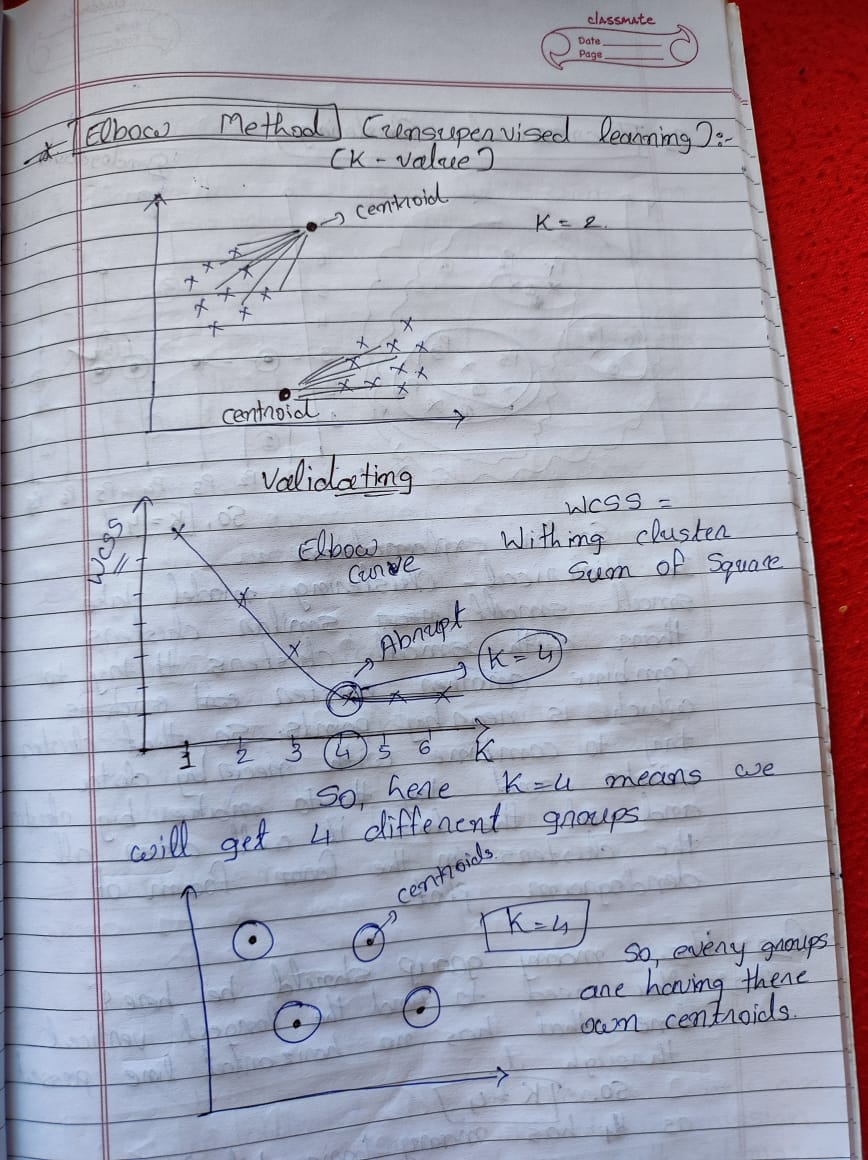 classmate
Date
Page
* Elbow Method (unsupervised learning):-
(K-value)
centroid
K = 2.
centroid
Validating
WCSS
Elbow
Curve
WCSS =
Withing cluster
Sum of Square
Abrupt
K=4
1 2 3 4 5 6 K
So, here K=4 means we
will get 4 different groups
centroids.
K=4
So, every groups
are having there
own centroids.